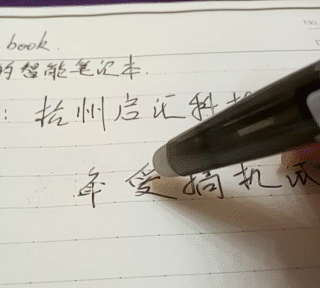 book.
的智能笔记本.
: 杭州启汇科技
年 爱搞机试
NO.